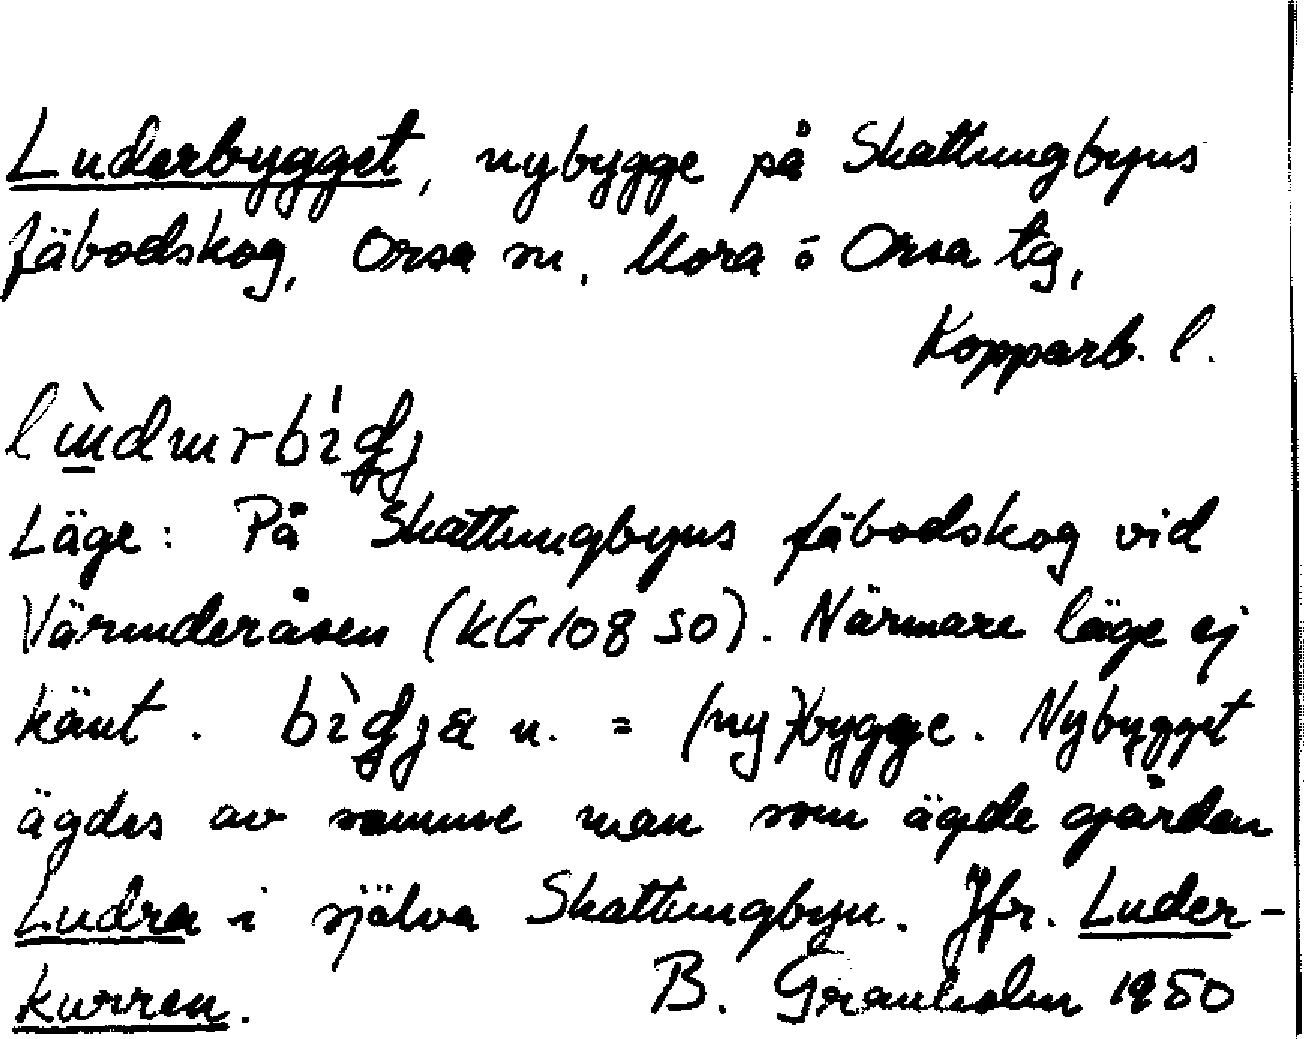 Luderbygget, nybygge på Skattungbyns
fäbodskog, Orsa sn. Mora o Orsa tg,
Kopparb. l.
Läge: På Skattungbyns fäbodskog vid
Värmderåsen (KG 108 SO). Närmare läge ej
känt. n. = (ny)bygge. Nybygget
ägdes av samme man som ägde gården
Ludra i själva Skattungbyn. Jfr. Luder-
kurren. B. Granholm 1950